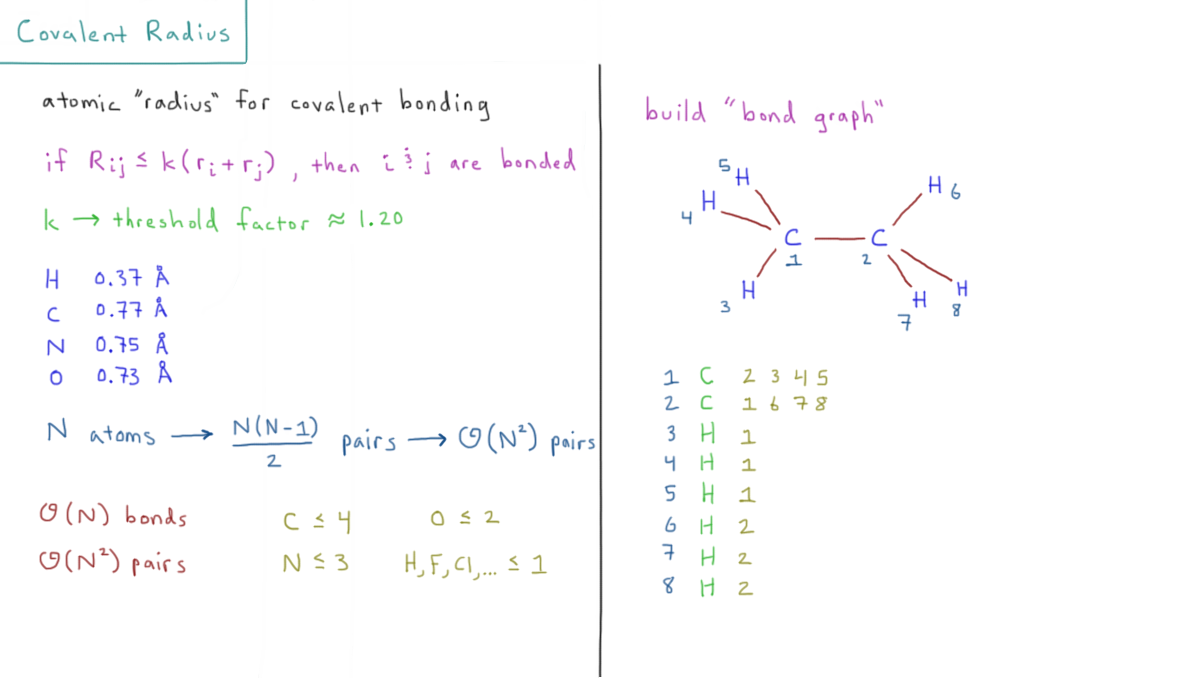 Covalent Radius
atomic "radius" for covalent bonding
if Rij ≤ k(ri+rj), then i & j are bonded
k → threshold factor ≈ 1.20
H 0.37 Å
C 0.77 Å
N 0.75 Å
O 0.73 Å
N atoms → N(N-1)/2 pairs → O(N²) pairs
O(N) bonds C ≤ 4 O ≤ 2
O(N²) pairs N ≤ 3 H, F, Cl,... ≤ 1
build "bond graph"
5 H
H 6
4 H
C C
1 2
H H H
3 7 8
1 C 2 3 4 5
2 C 1 6 7 8
3 H 1
4 H 1
5 H 1
6 H 2
7 H 2
8 H 2